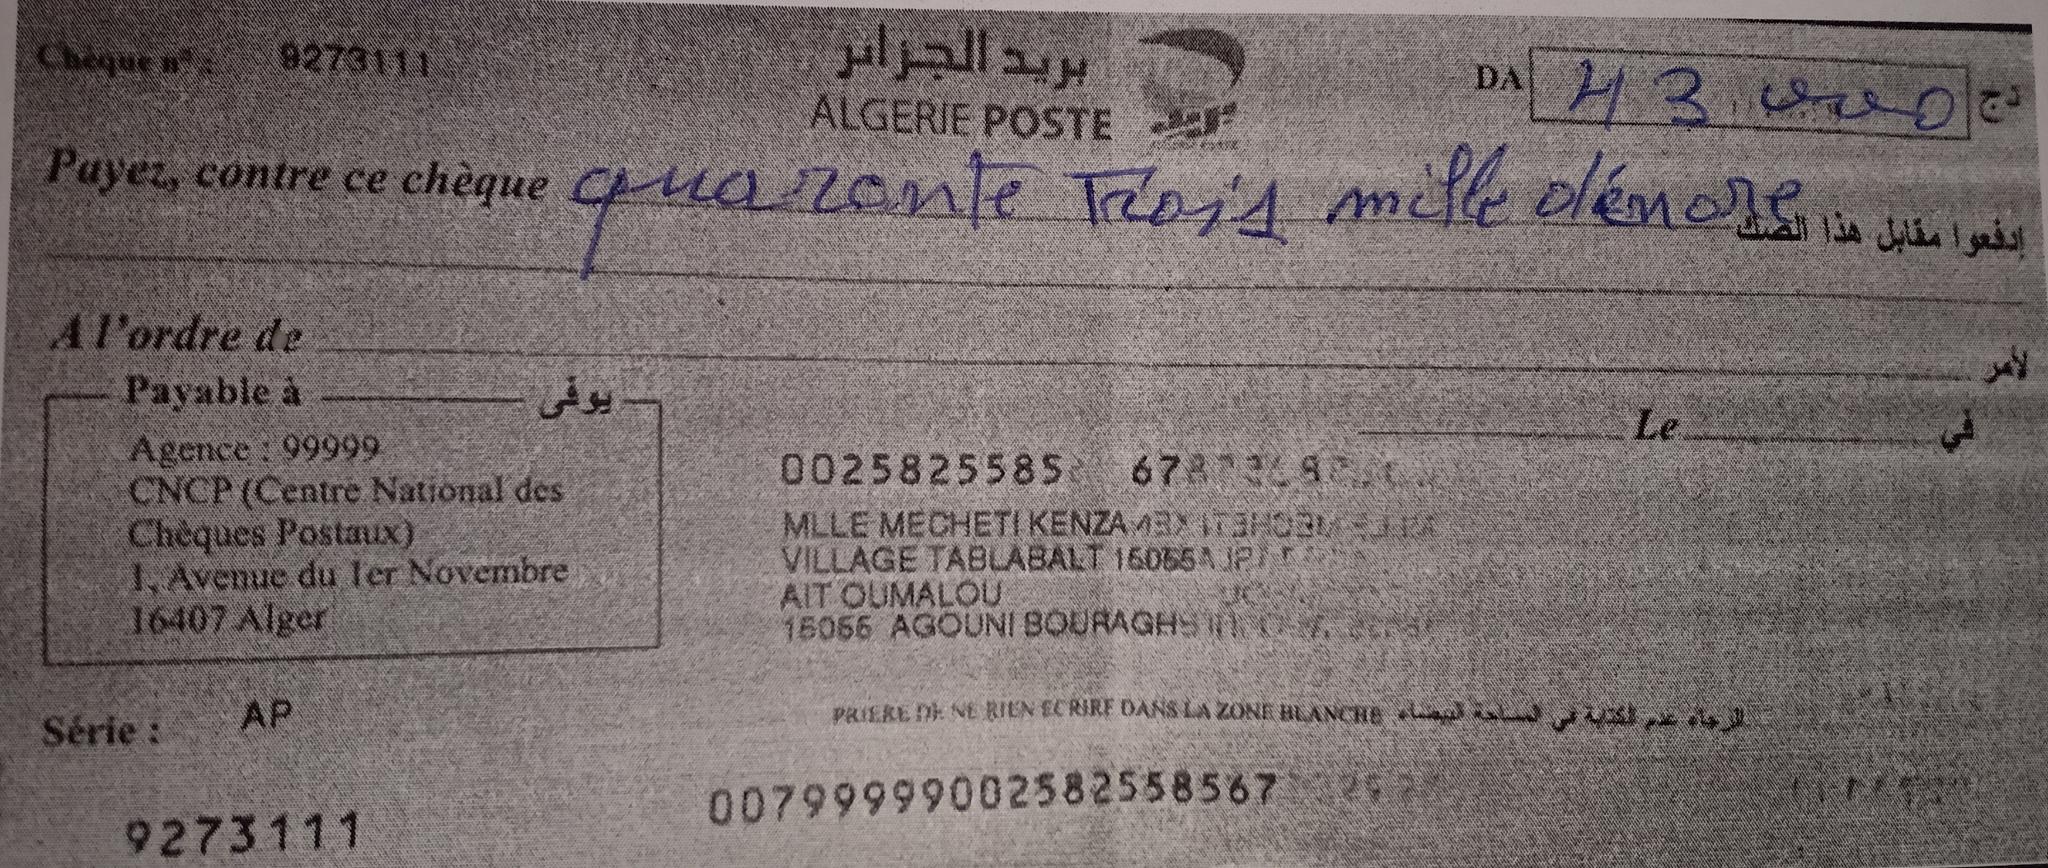 Chèque n° : 9273111
بريد الجزائر
ALGERIE POSTE
DA 43 000 دج
Payez, contre ce chèque quarante Trois mille dénare إدفعوا مقابل هذا الصك
A l'ordre de لأمر
Payable à يوفى
Le في
Agence : 99999
CNCP (Centre National des
Chèques Postaux)
1, Avenue du 1er Novembre
16407 Alger
0025825585 67
MLLE MECHETI KENZA
VILLAGE TABLABALT 15055
AIT OUMALOU
15055 AGOUNI BOURAGH
Série : AP
PRIERE DE NE RIEN ECRIRE DANS LA ZONE BLANCHE الرجاء عدم الكتابة في المساحة البيضاء
9273111
00799999002582558567